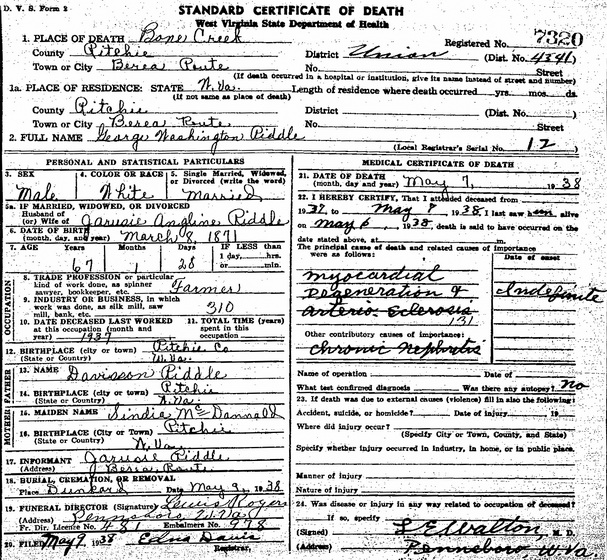 D. V. S. Form 2
STANDARD CERTIFICATE OF DEATH
West Virginia State Department of Health
Registered No. 7320
1. PLACE OF DEATH Bone Creek
County Ritchie
District Union (Dist. No. 4341
Town or City Berea Route No. Street
(If death occurred in a hospital or institution, give its name instead of street and number)
1a. PLACE OF RESIDENCE: STATE W. Va. Length of residence where death occurred yrs. mos. ds.
(If not same as place of death)
County Ritchie District (Dist. No.
Town or City Berea Route No. Street
2. FULL NAME George Washington Riddle
(Local Registrar's Serial No. 12
PERSONAL AND STATISTICAL PARTICULARS
3. SEX Male
4. COLOR OR RACE White
5. Single Married, Widowed, or Divorced (write the word) Married
5a. IF MARRIED, WIDOWED, OR DIVORCED
Husband of
(or) Wife of Angline Riddle
6. DATE OF BIRTH
(month, day, and year) March 8, 1871
7. AGE Years Months Days IF LESS than
1 day, hrs.
or min.
67 1 28
OCCUPATION
8. TRADE PROFESSION or particular
kind of work done, as spinner
sawyer, bookkeeper, etc. Farmer
9. INDUSTRY OR BUSINESS, in which
work was done, as silk mill, saw
mill, bank, etc. 310
10. DATE DECEASED LAST WORKED
at this occupation (month and
year) 1937
11. TOTAL TIME (years)
spent in this
occupation
12. BIRTHPLACE (city or town) Ritchie Co
(State or Country) W. Va.
FATHER
13. NAME Davisson Riddle
14. BIRTHPLACE (city or town) Ritchie
(State or Country) W. Va.
MOTHER
15. MAIDEN NAME
16. BIRTHPLACE (city or town) Ritchie
(State or Country) W. Va.
17. INFORMANT Riddle
(Address) Berea Route
18. BURIAL, CREMATION, OR REMOVAL
Place Dunkard Date May 9, 1938
19. FUNERAL DIRECTOR (Signature) Lewis Rogers
(Address) Pennsboro W. Va.
Fr. Dir. Licence No. 481 Embalmers No. 978
20. FILED May 9 1938 Edna Davis
Registrar.
MEDICAL CERTIFICATE OF DEATH
21. DATE OF DEATH
(month, day and year) May 7, 1938
22. I HEREBY CERTIFY, That I attended deceased from
1937, to May 1938. I last saw him alive
on May 6, 1938, death is said to have occurred on the
date stated above, at m.
The principal cause of death and related causes of importance
were as follows:
Date of onset
myocardial
Degeneration & Indefinite
arterio-sclerosis
131
Other contributory causes of importance:
chronic nephritis
Name of operation Date of
What test confirmed diagnosis Was there any autopsy? No
23. If death was due to external causes (violence) fill in also the following:
Accident, suicide, or homicide? Date of injury 19
Where did injury occur?
(Specify City or Town, County, and State)
Specify whether injury occurred in industry, in home, or in public place.
Manner of injury
Nature of injury
24. Was disease or injury in any way related to occupation of deceased?
If so, specify
(Signed) L E Walton, M. D.
(Address) Pennsboro W Va